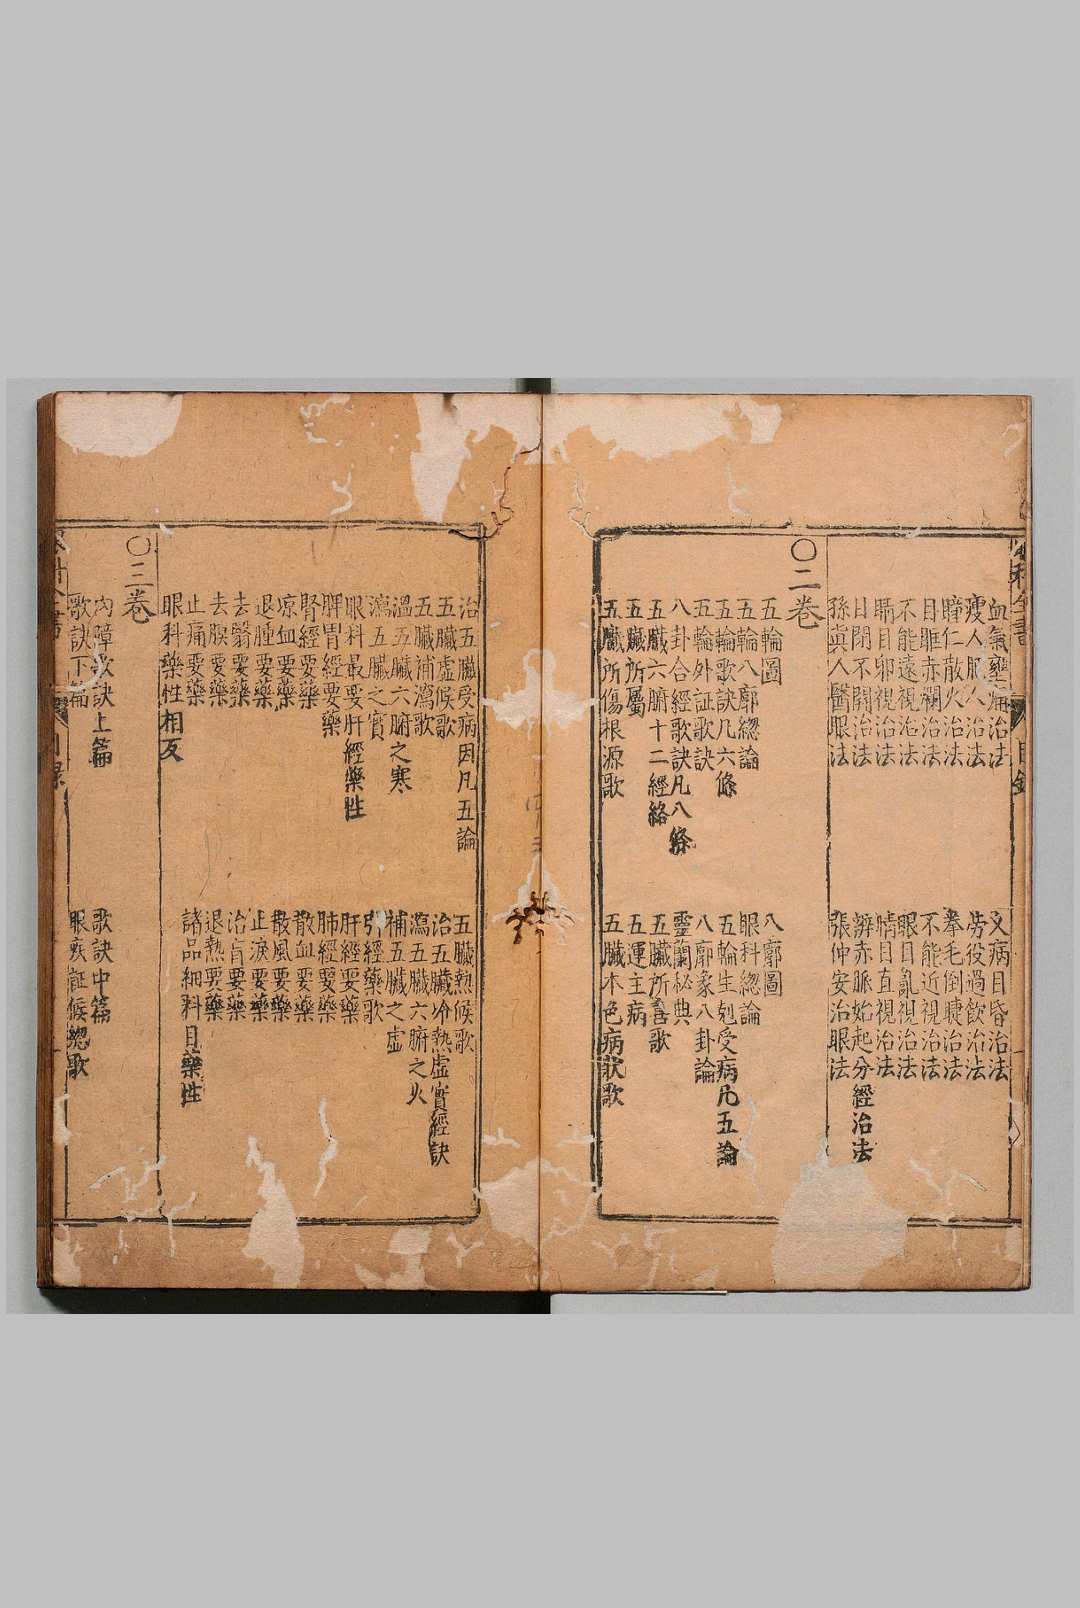 血氣壅痛治法
久病目昏治法
瘦人肥人治法
勞役過飲治法
瞳仁散火治法
拳毛倒睫治法
目睢赤爛治法
不能近視治法
不能遠視治法
眼目亂視治法
瞈目卯視治法
睛目直視治法
日閉不開治法
辨赤脈始起分經治法
孫眞人醫眼法
張仲安治眼法
〇二卷
五輪圖
八廓圖
五輪八廓總論
眼科總論
五輪歌訣凡六條
五輪生剋受病凡五論
五輪外証歌訣
八廓象八卦論
八卦合經歌訣凡八條
靈蘭秘典
五臟六腑十二經絡
五臟所喜歌
五臟所屬
五運主病
五臟所傷根源歌
五臟本色病狀歌
治五臟受病因凡五論
五臟熱候歌
五臟虛候歌
治五臟冷熱虛實經訣
五臟補瀉歌
瀉五臟六腑之火
溫五臟六腑之寒
補五臟之虛
瀉五臟之實
引經藥歌
眼科最要肝經藥性
肝經要藥
脾胃經要藥
肺經要藥
腎經要藥
散血要藥
凉血要藥
散風要藥
退腫要藥
止淚要藥
去翳要藥
治盲要藥
去膜要藥
退熱要藥
止痛要藥
諸品細料目藥性
眼科藥性相反
〇三卷
內障歌訣上篇
歌訣中篇
歌訣下篇
眼疾証候總歌